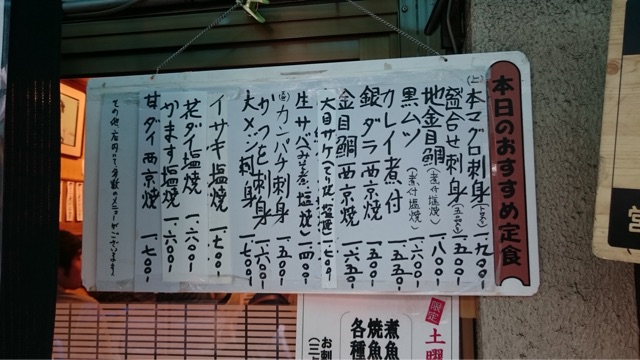 本日のおすすめ定食
(上)本マグロ刺身 一.九〇〇-
盛合せ刺身 一.五〇〇-
地金目鯛(煮付 塩焼) 一.八〇〇-
黒ムツ(煮付 塩焼)
カレイ煮付 一.五五〇-
銀ダラ西京焼 一.六〇〇-
金目鯛西京焼 一.六五〇-
一.七〇〇-
生サバ(みそ煮 塩焼) 一.四〇〇-
カンパチ刺身 一.五〇〇-
かつを刺身 一.六〇〇-
大メジ刺身 一.七〇〇-
イサキ塩焼 一.七〇〇-
花ダイ塩焼 一.六〇〇-
かます塩焼 一.六〇〇-
甘ダイ西京焼 一.七〇〇-
その他、店内にて多数のメニューがございます。
限定
土曜
煮魚
焼魚
各種
お刺
営